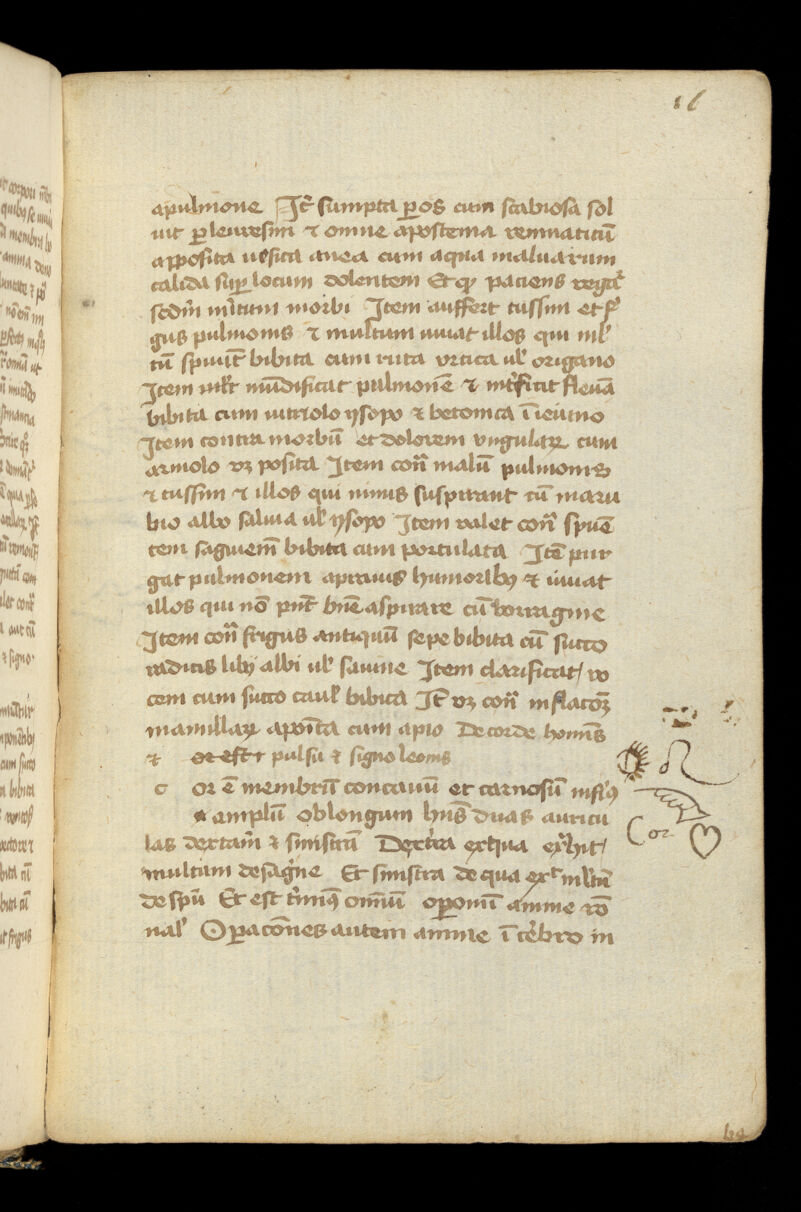 16
apulmone Itē sumpta ꝑos cum scabiosa sol
uit ꝑleuresim ⁊ omne apostema reumaticū
apposita uesica cum aqua maluarum
calida suꝑ locum dolentem Et qꝫ paciens
sedm̄ initum morbi Item auffert tussim et fͥ
gus pulmonis ⁊ multum iuuat illos qui
tū spuūt bibita cum ruta vrtica ul̓ origano
Item mūdificat pulmonē ⁊ fleuā
bibita cum ysopo ⁊ betonica ī ieiuno
Item contra morbū et dolorem vngularꝫ cum
armolo vꝫ posita Item con̄ malū pulmonis
⁊ tussim ⁊ illos qui nimis suspirant cū maru
bio albo saluia ul̓ ysopo Item valet con̄ spuē
tem sagwem̄ bibita cum portulata Itē pur
gat pulmonem aprauis humoribꝫ ⁊ iuuat
illos qui nō pn̄t bn̄e aspirare cū borragine
Item con̄ frigus antiquū sepe bibita cū succo
radicis lilij albi ul̓ sauine Item clarificat uo
cem cum succo caul̓ bibita Itē vꝫ con̄ inflacōꝫ
mamillarꝫ aponīta cum apio De corde hominis
⁊ pulsu ⁊ signo leonis
c or ē membrū concauū et carnosū
amplū oblongum hn̄s duas auricu
las dextam̄ ⁊ sinistrā
multum de saḡne Et sinistra de qua
de spū Et est omniū oꝑonū anime rō
nal̓ Oꝑacōnes autem anime ī cēbro in
Cor